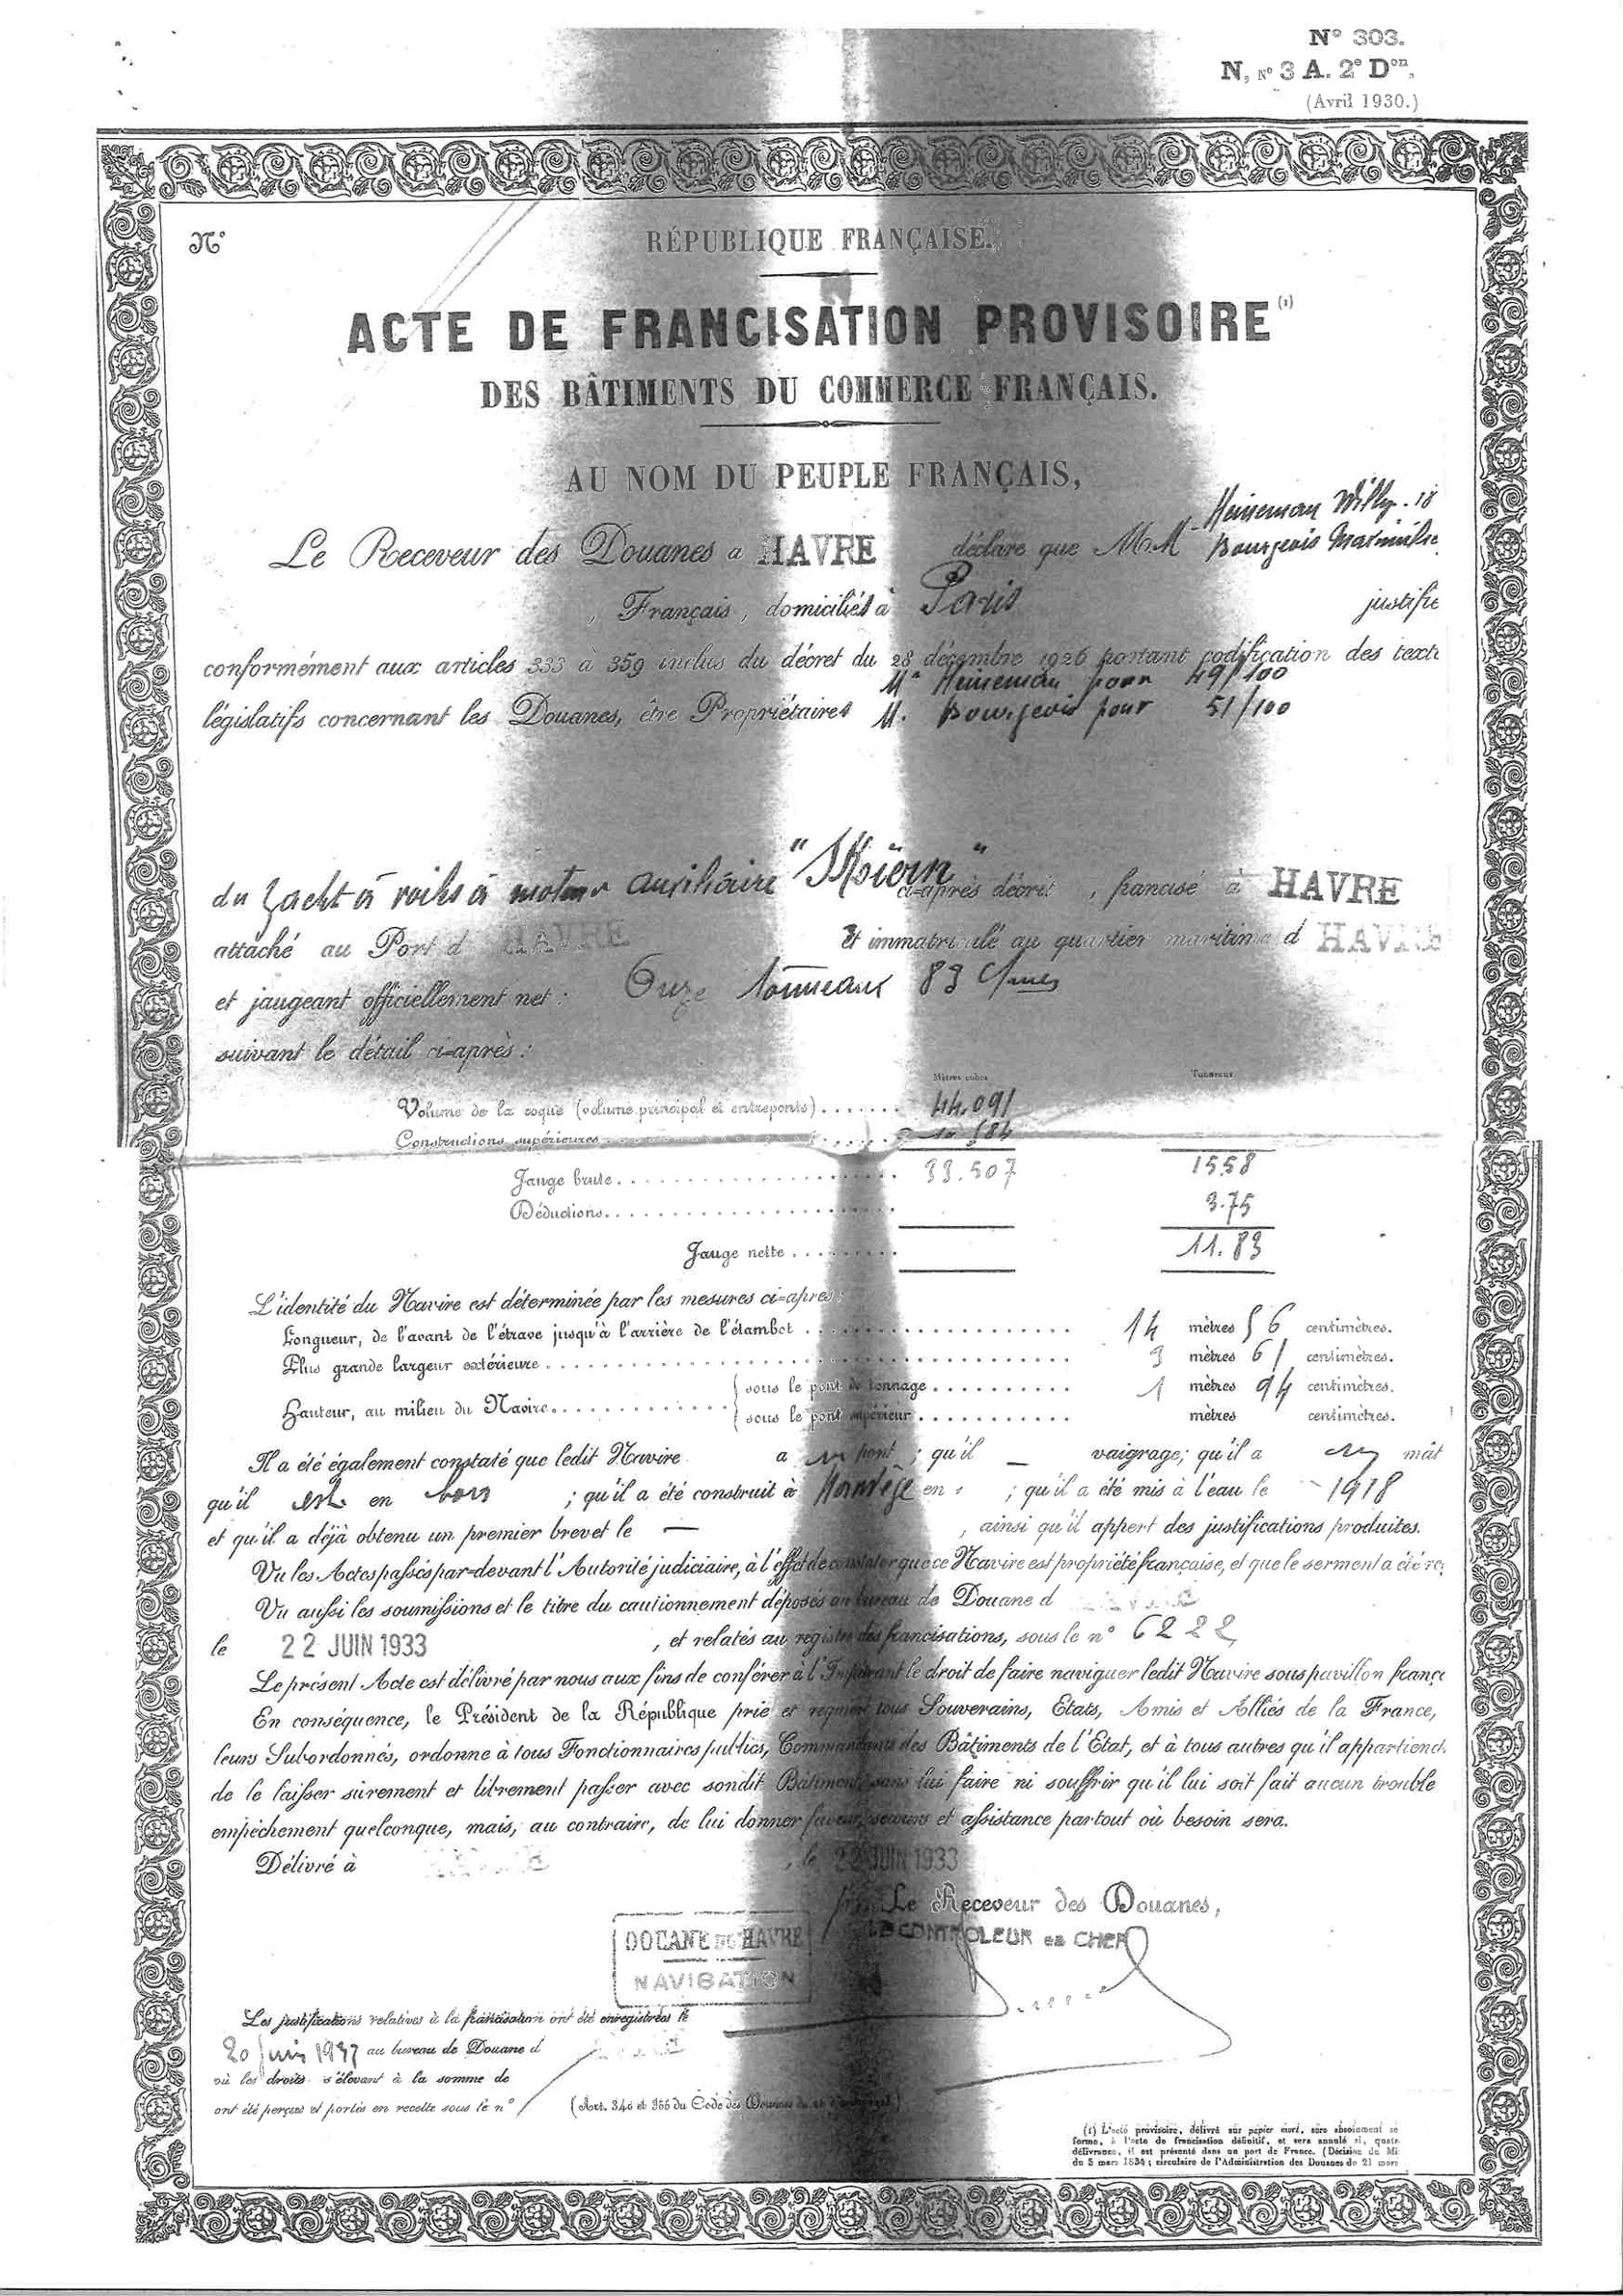 N° 303.
N, N° 3 A. 2e Don.
(Avril 1930.)
N°
RÉPUBLIQUE FRANÇAISE.
ACTE DE FRANCISATION PROVISOIRE (1)
DES BÂTIMENTS DU COMMERCE FRANÇAIS.
AU NOM DU PEUPLE FRANÇAIS,
Heineman Willy
Le Receveur des Douanes a HAVRE déclare que MM Bourgeois
, Français, domiciliés à Paris justifie
conformément aux articles 333 à 359 inclus du décret du 28 décembre 1926 portant codification des text
Mr Heineman pour 49/100
législatifs concernant les Douanes, être Propriétaires M. Bourgeois pour 51/100
du Yacht à voiles à moteur auxiliaire "Skoïern" ci-après décrit, francisé à HAVRE
attaché au Port d HAVRE Et immatriculé au quartier maritime d HAVRE
et jaugeant officiellement net : Onze tonneaux 83
suivant le détail ci-après :
Mètres cubes Tonneaux
Volume de la coque (volume principal et entreponts) ....... 44.091
Constructions supérieures
Jauge brute 33.507 15.58
Déductions 3.75
Jauge nette 11.83
L'identité du Navire est déterminée par les mesures ci-après :
Longueur, de l'avant de l'étrave jusqu'à l'arrière de l'étambot 14 mètres 56 centimètres.
Plus grande largeur extérieure 3 mètres 61 centimètres.
Hauteur, au milieu du Navire { sous le pont de tonnage 1 mètres 94 centimètres.
{ sous le pont supérieur mètres centimètres.
Il a été également constaté que ledit Navire a un pont ; qu'il — vaigrage; qu'il a un mât
qu'il est en bois ; qu'il a été construit à Norvège en ; qu'il a été mis à l'eau le 1918
et qu'il a déjà obtenu un premier brevet le — , ainsi qu'il appert des justifications produites.
Vu les Actes passés par-devant l'Autorité judiciaire, à l'effet de constater que ce Navire est propriété française, et que le serment a été re
Vu aussi les soumissions et le titre du cautionnement déposés au bureau de Douane d
le 22 JUIN 1933 , et relatés au registre des francisations, sous le n° 6222
Le présent Acte est délivré par nous aux fins de conférer à l'Impétrant le droit de faire naviguer ledit Navire sous pavillon frança
En conséquence, le Président de la République prie et requiert tous Souverains, États, Amis et Alliés de la France,
leurs Subordonnés, ordonne à tous Fonctionnaires publics, Commandants des Bâtiments de l'État, et à tous autres qu'il appartiend
de le laisser sûrement et librement passer avec sondit Bâtiment sans lui faire ni souffrir qu'il lui soit fait aucun trouble
empêchement quelconque, mais, au contraire, de lui donner faveur, secours et assistance partout où besoin sera.
Délivré à , le 22 JUIN 1933
Le Receveur des Douanes,
LE CONTROLEUR en CHEF
DOUANE DU HAVRE
NAVIGATION
Les justifications relatives à la francisation ont été enregistrées le
20 Juin 1933 au bureau de Douane d
où les droits s'élevant à la somme de
ont été perçus et portés en recette sous le n° (Art. 340 et 366 du Code des Douanes
(1) L'acte provisoire, délivré sur papier
forme, à l'acte de francisation définitif, et sera annulé si,
délivrance, il est présenté dans un port de France. (Décision du Mi
du 5 mars 1834 ; circulaire de l'Administration des Douanes du 21 mars